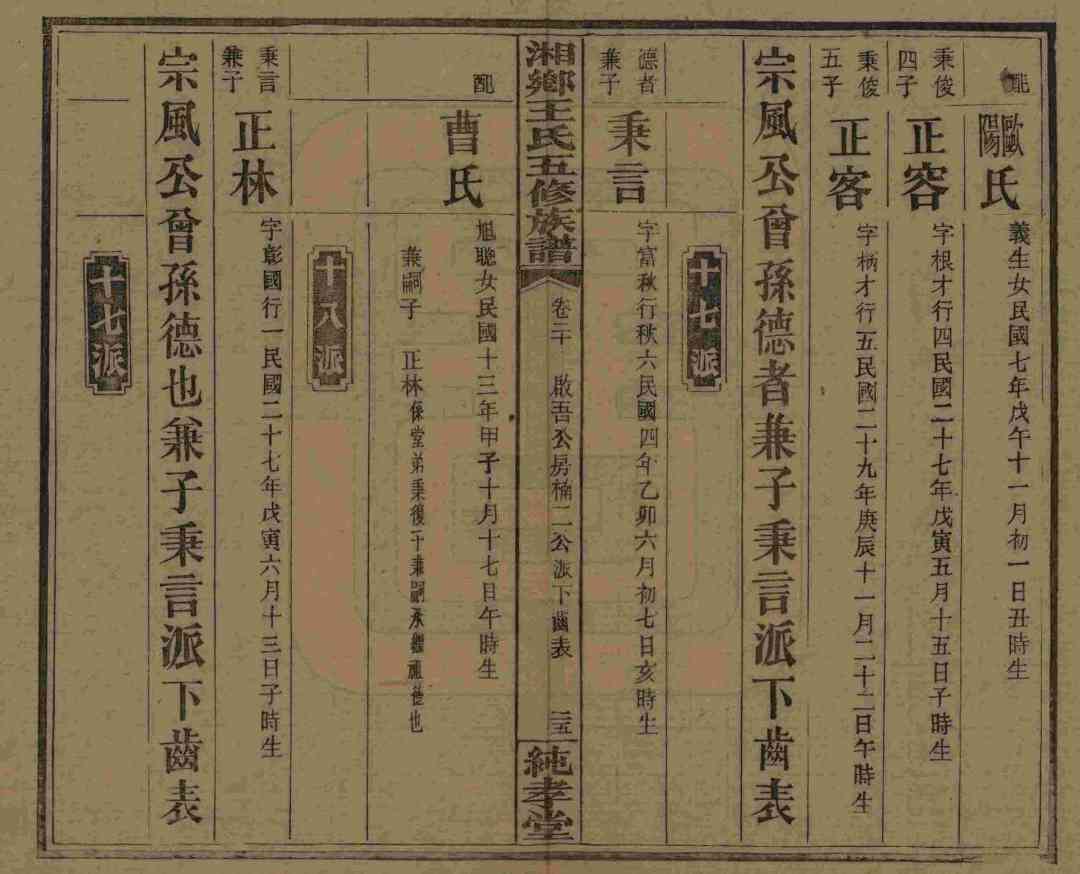 配
歐陽氏
義生女民國七年戊午十一月初一日丑時生
秉俊四子
正容
字根才行四民國二十七年戊寅五月十五日子時生
秉俊五子
正客
字柄才行五民國二十九年庚辰十一月二十二日午時生
宗風公曾孫德者兼子秉言派下齒表
十七派
德者兼子
秉言
字富秋行秋六民國四年乙卯六月初七日亥時生
湘鄉王氏五修族譜
卷二十
啟吾公房楠二公派下齒表
三五
純孝堂
配
曹氏
旭聰女民國十三年甲子十月十七日午時生
兼嗣子 正林係堂弟秉後之子兼嗣承繼祖德也
十八派
秉言兼子
正林
字彰國行一民國二十七年戊寅六月十三日子時生
宗風公曾孫德也兼子秉言派下齒表
十七派